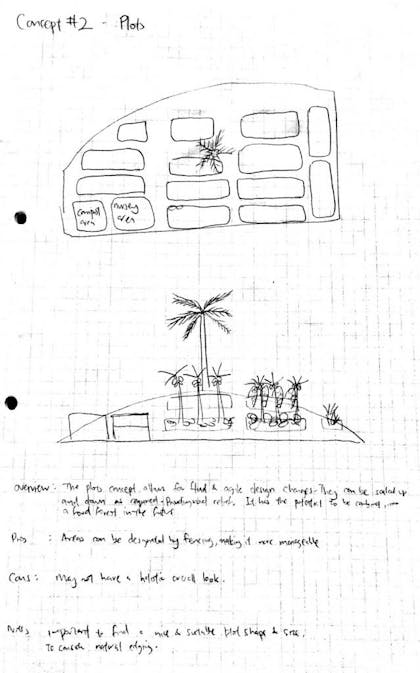 Concept #2 - Plots
compost area
nursery area
Overview: The plots concept allows for fluid & agile design changes. They can be scaled up
and down as required. It has the potential to be
a food forest in the future.
Pros : Areas can be designated by fencing, making it more manageable
Cons : May not have a holistic overall look.
Notes: important to find a nice & suitable plot shape & size.
To consider natural edging.